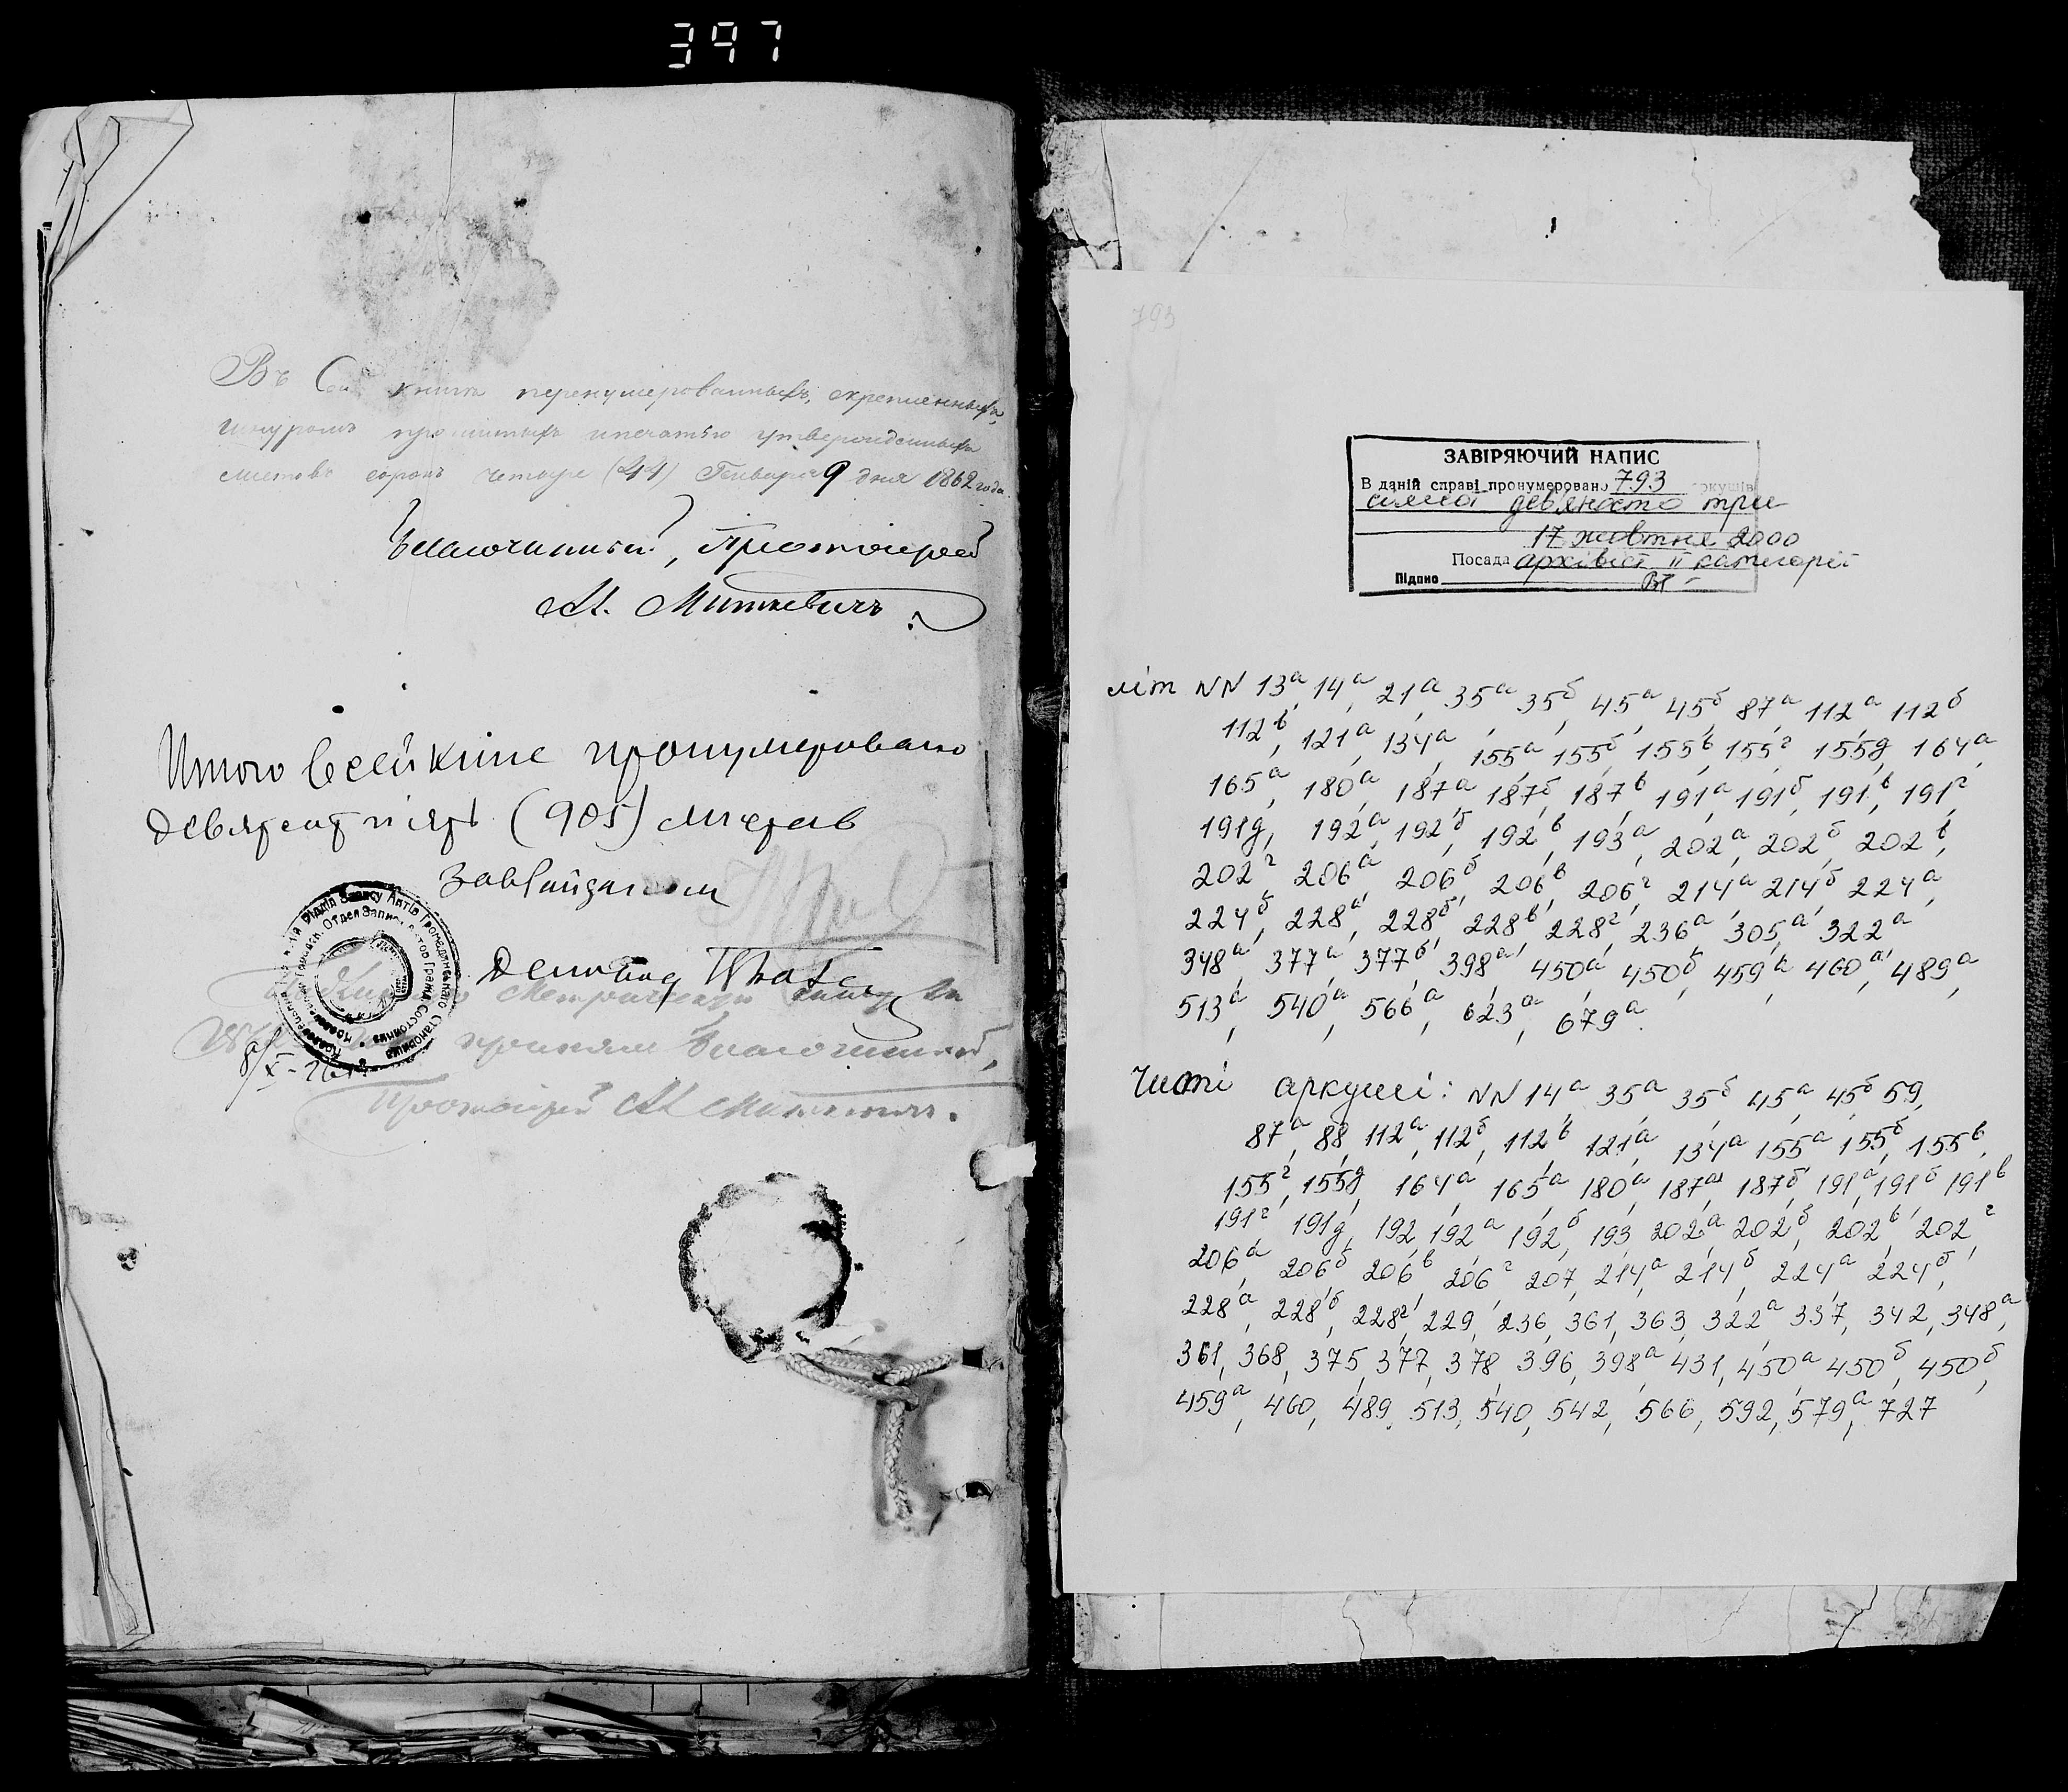 397
Въ Сей книгѣ перенумерованныхъ, скрепленныхъ,
шнуромъ прошитыхъ и печатью утвержденныхъ
листовъ сорокъ четыре (44) Генваря 9 дня 1862 года.
Благочинный, Протоіерей
А. Миткевичъ.
Итого в сей книге пронумеровано
девятсот пять (905) листов
Завгайзагсом
Деловод
метрическую книгу за
принялъ Благочинный,
8/X-26
Протоіерей А. Миткевичъ.
793
ЗАВІРЯЮЧИЙ НАПИС
В даній справі пронумеровано 793 аркушів
сімсот дев'яносто три
17 жовтня 2000
Посада архівіст II категорії
Підпис
літ NN 13а, 14а, 21а, 35а, 35б, 45а, 45б, 87а, 112а, 112б
112в, 121а, 134а, 155а, 155б, 155в, 155г, 155д, 164а,
165а, 180а, 187а, 187б, 187в, 191а, 191б, 191в, 191г,
191д, 192а, 192б, 192в, 193а, 202а, 202б, 202в,
202г, 206а, 206б, 206в, 206г, 214а, 214б, 224а,
224б, 228а, 228б, 228в, 228г, 236а, 305а, 322а
348а, 377а, 377б, 398а, 450а, 450б, 459а, 460а, 489а,
513а, 540а, 566а, 623а, 679а.
Чисті аркуші: NN 14а, 35а, 35б, 45а, 45б, 59,
87а, 88, 112а, 112б, 112в, 121а, 134а, 155а, 155б, 155в,
155г, 155д, 164а, 165а, 180а, 187а, 187б, 191а, 191б, 191в
191г, 191д, 192, 192а, 192б, 193, 202а, 202б, 202в, 202г,
206а, 206б, 206в, 206г, 207, 214а, 214б, 224а, 224б,
228а, 228б, 228г, 229, 236, 361, 363, 322а, 337, 342, 348а,
361, 368, 375, 377, 378, 396, 398а, 431, 450а, 450б, 450б,
459а, 460, 489, 513, 540, 542, 566, 592, 579а, 727